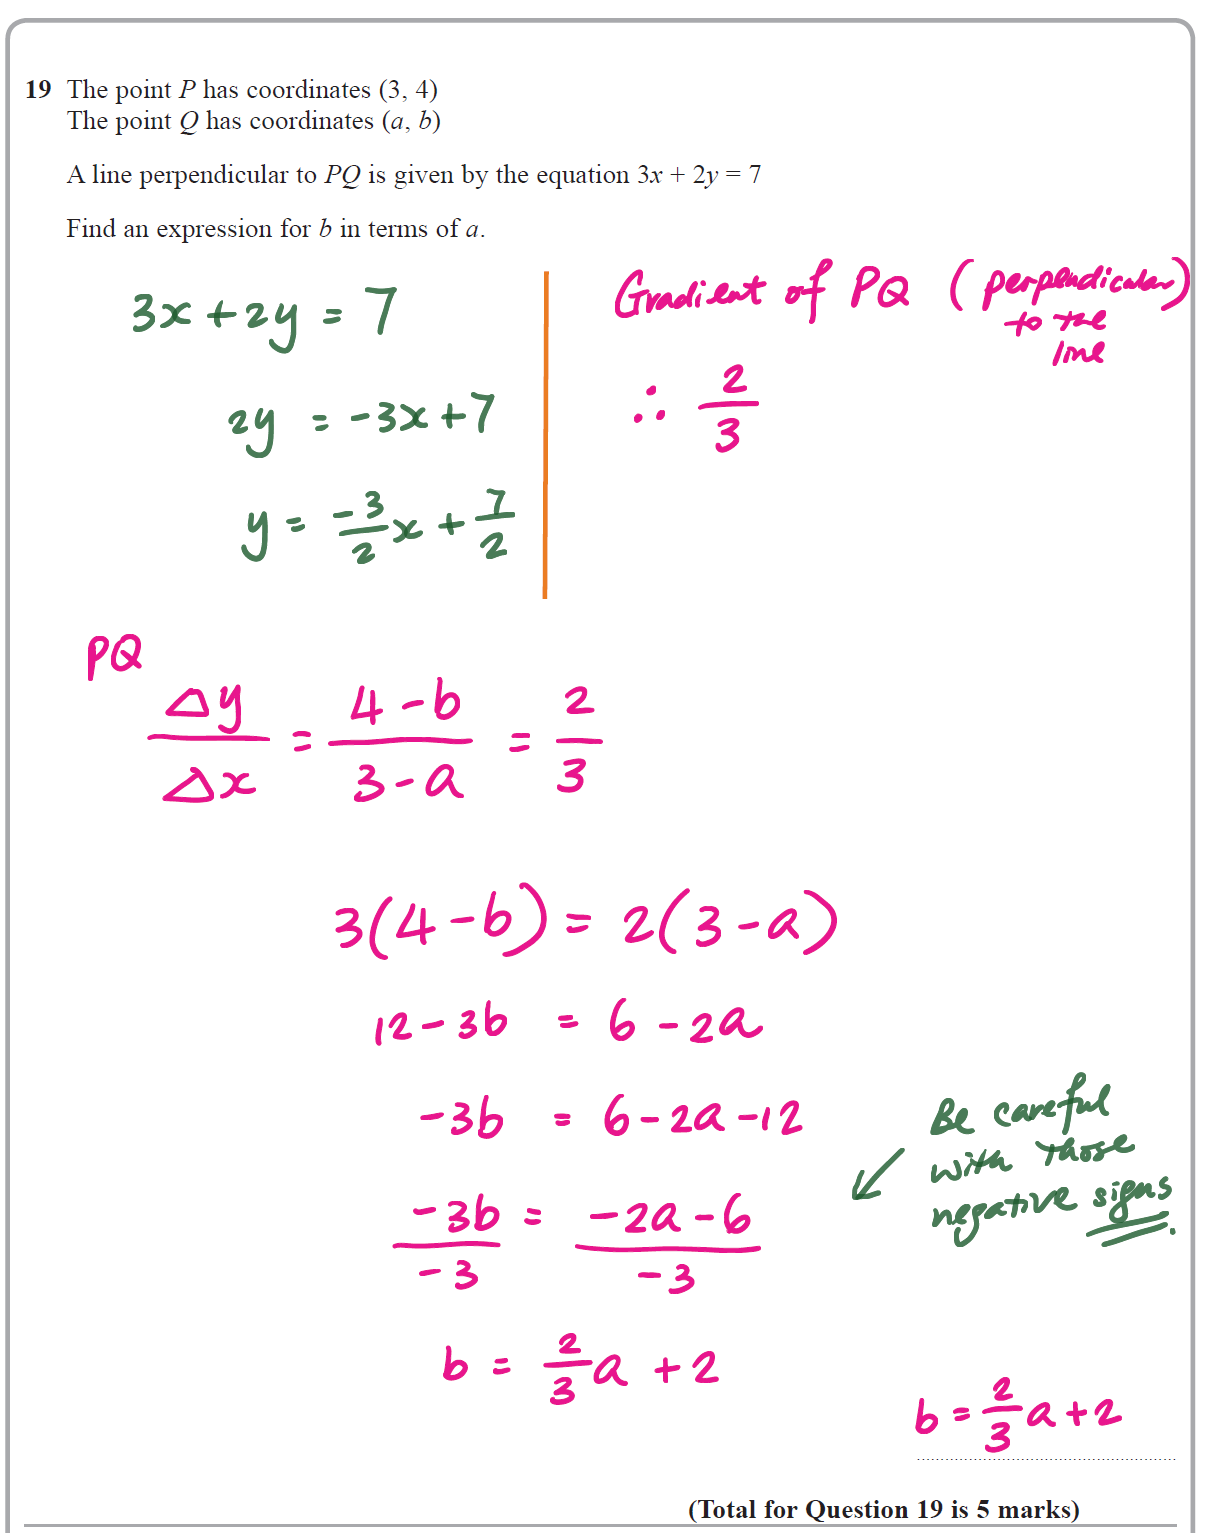 19 The point P has coordinates (3, 4)
The point Q has coordinates (a, b)
A line perpendicular to PQ is given by the equation 3x + 2y = 7
Find an expression for b in terms of a.
3x + 2y = 7
2y = -3x + 7
y = -3/2 x + 7/2
Gradient of PQ (perpendicular
to the
line)
∴ 2/3
PQ
Δy/Δx = (4 - b)/(3 - a) = 2/3
3(4 - b) = 2(3 - a)
12 - 3b = 6 - 2a
-3b = 6 - 2a - 12
-3b/-3 = (-2a - 6)/-3
b = 2/3 a + 2
Be careful
with those
negative signs.
b = 2/3 a + 2
(Total for Question 19 is 5 marks)